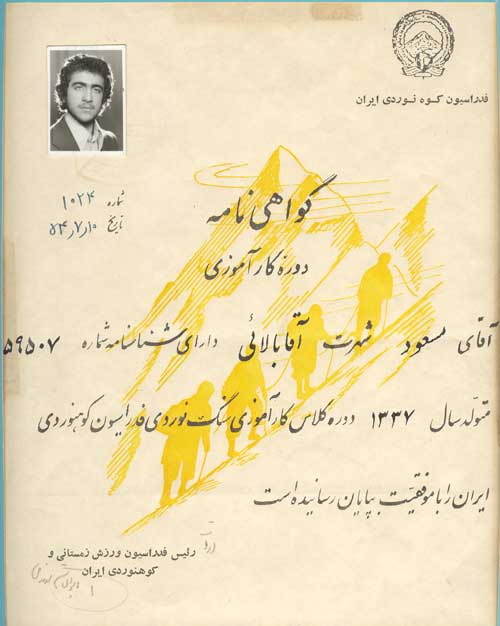 فدراسیون کوه نوردی ایران
شماره ۱۰۲۴
تاریخ ۵۴ر۷ر۱۰
گواهی نامه
دوره کارآموزی
آقای مسعود شهرت آقابالائی دارای شناسنامه شماره ۵۹۵۰۷
متولد سال ۱۳۳۷ دوره کلاس کارآموزی سنگ نوردی فدراسیون کوهنوردی
ایران را با موفقیّت بپایان رسانیده است
رئیس فدراسیون ورزش زمستانی و
کوهنوردی ایران